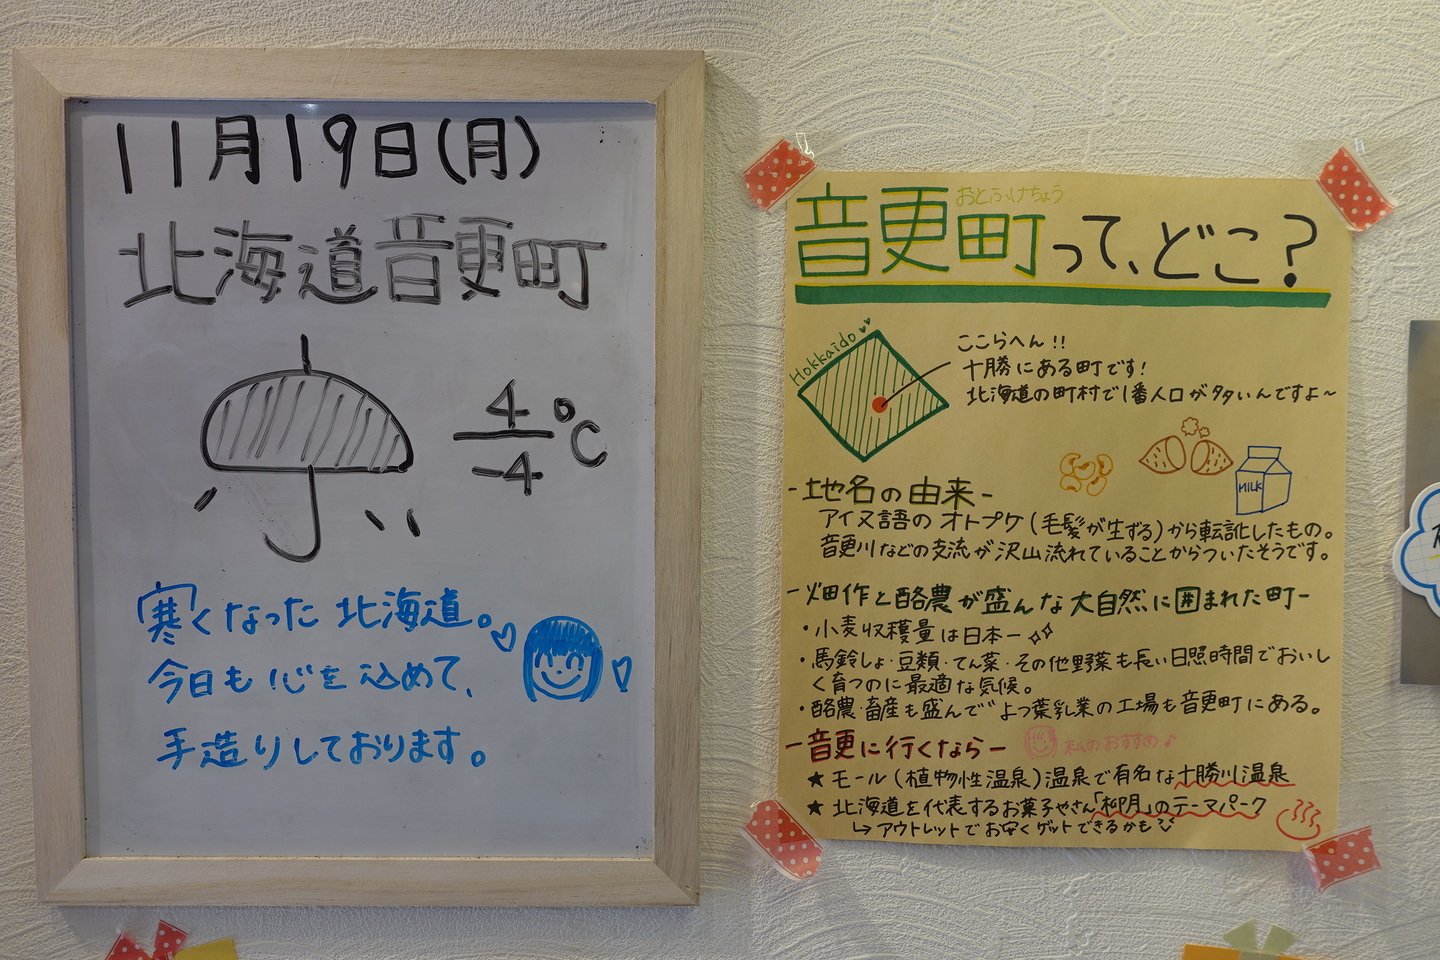 11月19日(月)
北海道音更町
4
-4
℃
寒くなった北海道。
今日も心を込めて、
手造りしております。
おとふけちょう
音更町って、どこ?
Hokkaido
ここらへん!!
十勝にある町です!
北海道の町村で1番人口が多いんですよ~
MILK
-地名の由来-
アイヌ語のオトプケ(毛髪が生ずる)から転訛したもの。
音更川などの支流が沢山流れていることからついたそうです。
-畑作と酪農が盛んな大自然に囲まれた町-
・小麦収穫量は日本一
・馬鈴しょ・豆類・てん菜・その他野菜も長い日照時間でおいし
く育つのに最適な気候。
・酪農・畜産も盛んでよつ葉乳業の工場も音更町にある。
-音更に行くなら-
私のおすすめ♪
★モール(植物性温泉)温泉で有名な十勝川温泉
★北海道を代表するお菓子やさん「柳月」のテーマパーク
↳アウトレットでお安くゲットできるかも